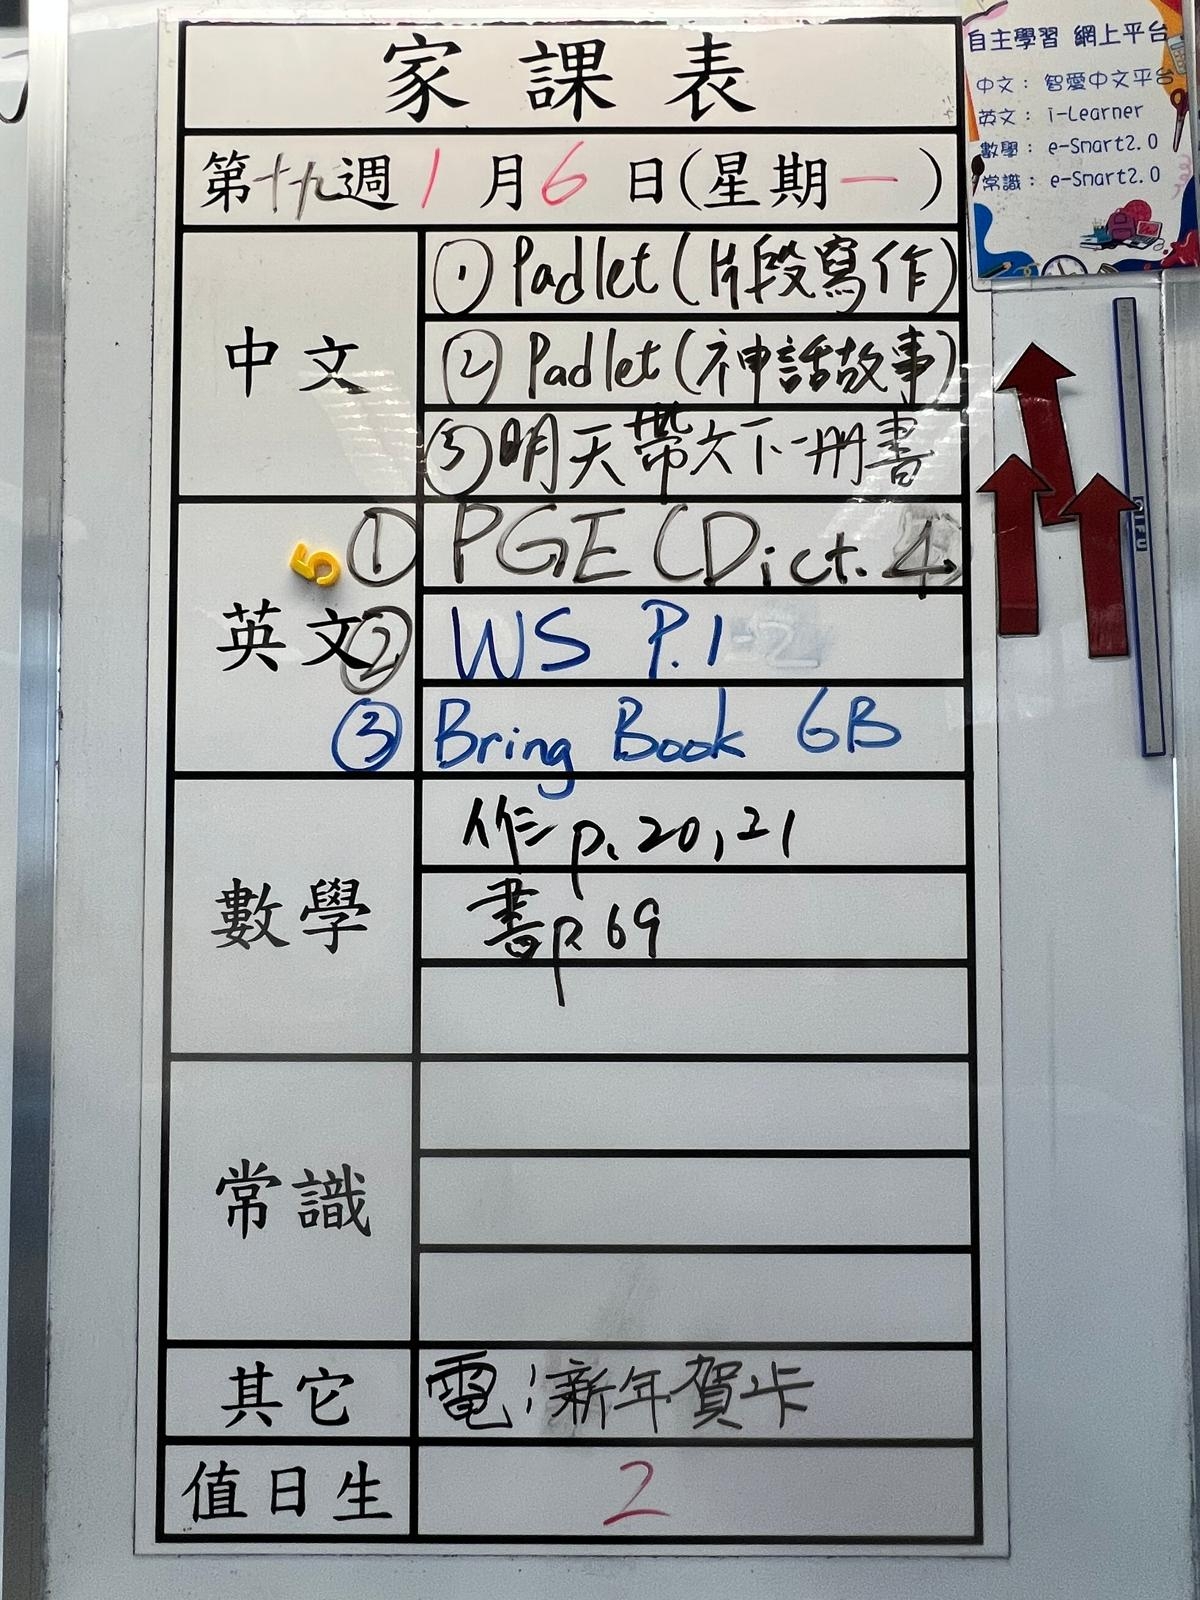 家課表
第十九週 1月6日(星期一)
中文
① Padlet (片段寫作)
② Padlet (神話故事)
③ 明天帶六下一冊書
英文
① PGE (Dict. 4)
② WS P.1
③ Bring Book 6B
數學
作 p. 20, 21
書 p. 69
常識
其它
電：新年賀卡
值日生
2
自主學習 網上平台
中文： 智愛中文平台
英文： i-Learner
數學： e-Smart2.0
常識： e-Smart2.0
5